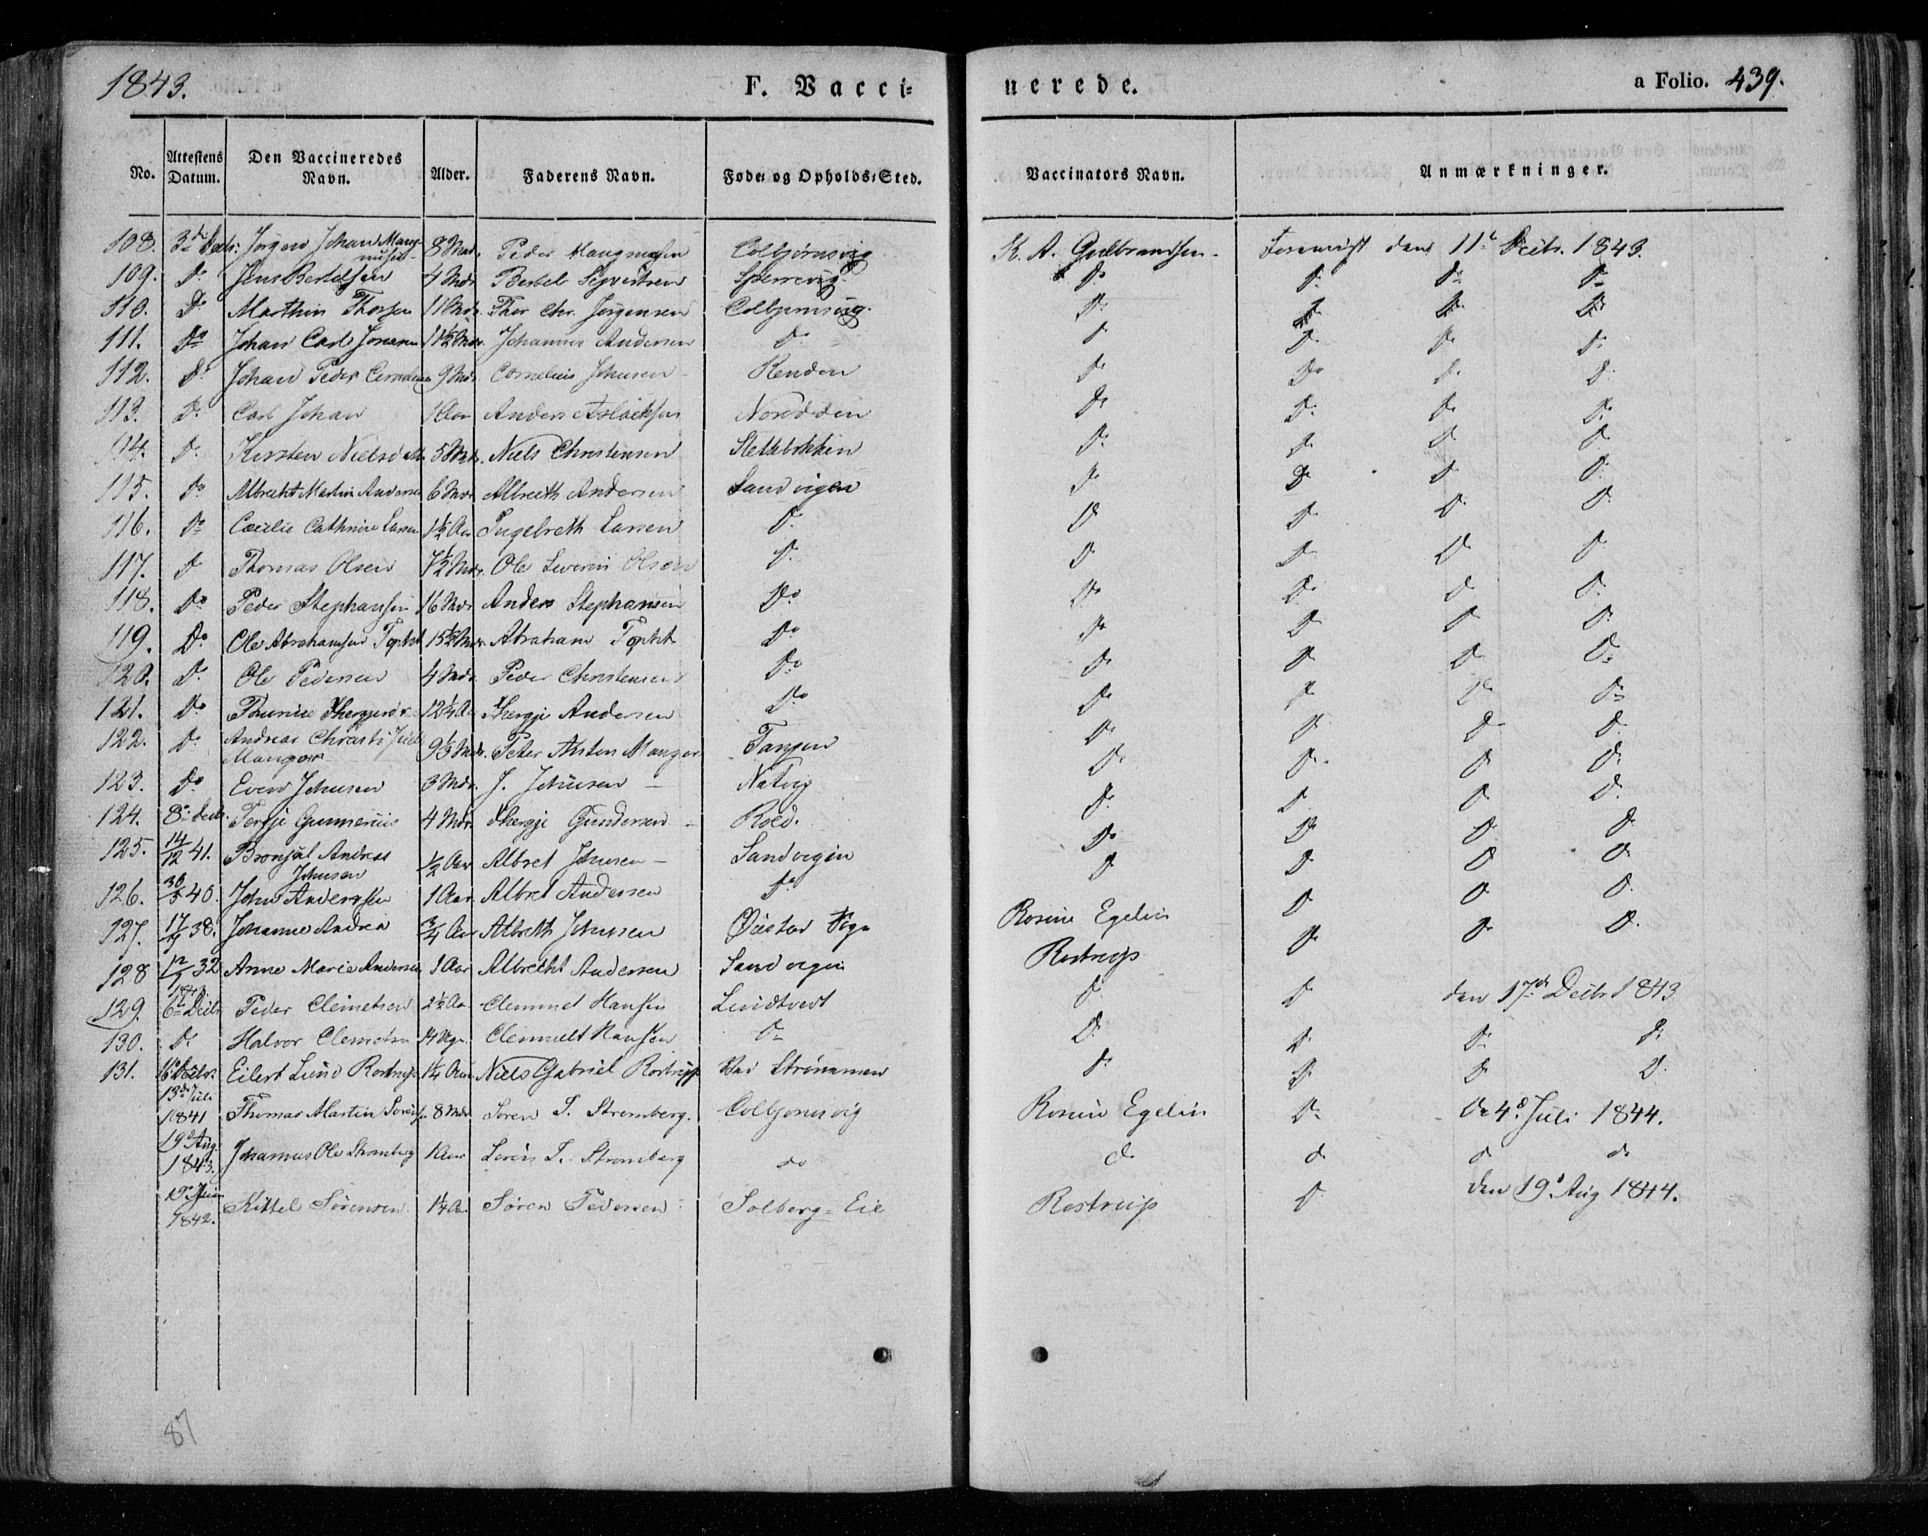 1843.
F. Vacci-
nerede.
a Folio. 439.
No. Attestens Datum. Den Vaccineredes Navn. Alder. Faderens Navn. Føde- og Opholds-Sted. Vaccinators Navn. Anmærkninger.
108. 3de Decb: Jørgen Johan Mang- 8 Mdr. Peder Colbjørnsvig K. A. Gulbrandsen. Foreviist den 11te Decbr. 1843.
109. Do Jens Bertelsen 4 Mdr. Bertel Do Do Do Do
110. Do Marthin Thorsen 11 Mdr. Thor Chr. Jørgensen Colbjørnsvig. Do Do Do Do
111. Do Johan Carl 11½ Mdr. Johannes Andersen Do Do Do Do Do
112. Do Johan Peder 9 Mdr. Cornelius Johnsen Renden Do Do Do Do
113. Do Carl Johan 1 Aar Anders Aslaksen Do Do Do Do
114. Do Kirsten Nielsd 5 Mdr. Niels Christensen Do Do Do Do
115. Do Albrecht Martin Andersen 6 Mdr Albrecth Andersen Sandvigen Do Do Do Do
116. Do Cæcilie Cathrine Larsen 1½ Aar Ingebreth Larsen Do Do Do Do Do
117. Do Thomas Olsen 7½ Mdr. Ole Severin Olsen Do Do Do Do Do
118. Do Peder Stephansen 16 Mdr Anders Stephansen Do Do Do Do Do
119. Do Ole Abrahamsen 15½ Mdr Abraham Do Do Do Do Do
120. Do Ole Pedersen 4 Mdr. Peder Christensen Do Do Do Do Do
121. Do 12¼ A Therje Andersen Do Do Do Do Do
122. Do Andreas Christi Juel 9½ Mdr. Peter Anton Manger Tangen Do Do Do Do
Manger
123. Do Even Johnsen 3 Mdr. J. Johnsen Natvig Do Do Do Do
124. 8de Decbr. Terje Gunnerius 4 Mdr. Therje Gundersen Roed. Do Do Do Do
125. 14/12 41. Andreas ½ Aar Albret Johnsen Sandvigen Do Do Do Do
Johnsen
126. 30/5 40. John Anderssen 1 Aar Albret Andersen Do Do Do Do Do
127. 17/9 38. Johanne Andrea ¾ Aar Albreth Johnsen Øiestad Rosine Egelin Do Do Do
128 12/7 32 Anne Marie Andersen 1 Aar Albrecht Andersen Sandvigen Rostrup Do Do Do
1843
129. 6te Decbr Peder Clemetsen 2½ Aa Clemmet Hansen Lundtvedt Do Do den 17de Decbr 1843
130. Do Halvor Clemetsen 14 Uger Clemmelt Hansen Do Do Do Do Do
131. 16 Decbr. Eilert Lund Rostrup 1¼ Aar Niels Gabriel Rostrup Ved Strømmen Do Do Do Do
13de Juli
1841 Thomas Martin Sørens 8 Mdr Søren T. Stromberg. Colbjørnsvig Rosine Egelin Do De 4de Juli 1844.
19de Aug
1843. Johannes Ole Stromberg 1 Aar Søren T. Stromberg do do do do do
19de Juni
1842. Kittel Sørensen 1¼ A. Søren Pedersen Solberg-Eie Rostrup Do den 19de Aug 1844.
87